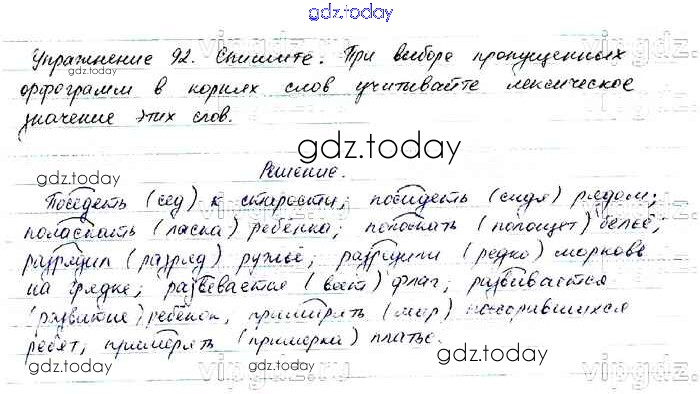 gdz.today
Упражнение 92. Спишите. При выборе пропущенных
gdz.today
орфограмм в корнях слов учитывайте лексическое
значение этих слов.
gdz.today
Решение.
gdz.today
Поседеть (сед) к старости; посидеть (сидя) рядом;
поласкать (ласка) ребёнка; полоскать (полощет) бельё;
разрядил (разряд) ружьё; разрядили (редко) морковь
на грядке; развевается (веет) флаг; развивается
(развитие) ребёнок, примирять (мир) поссорившихся
ребят; примерять (примерка) платье.
gdz.today
gdz.today
vipgdz.ru